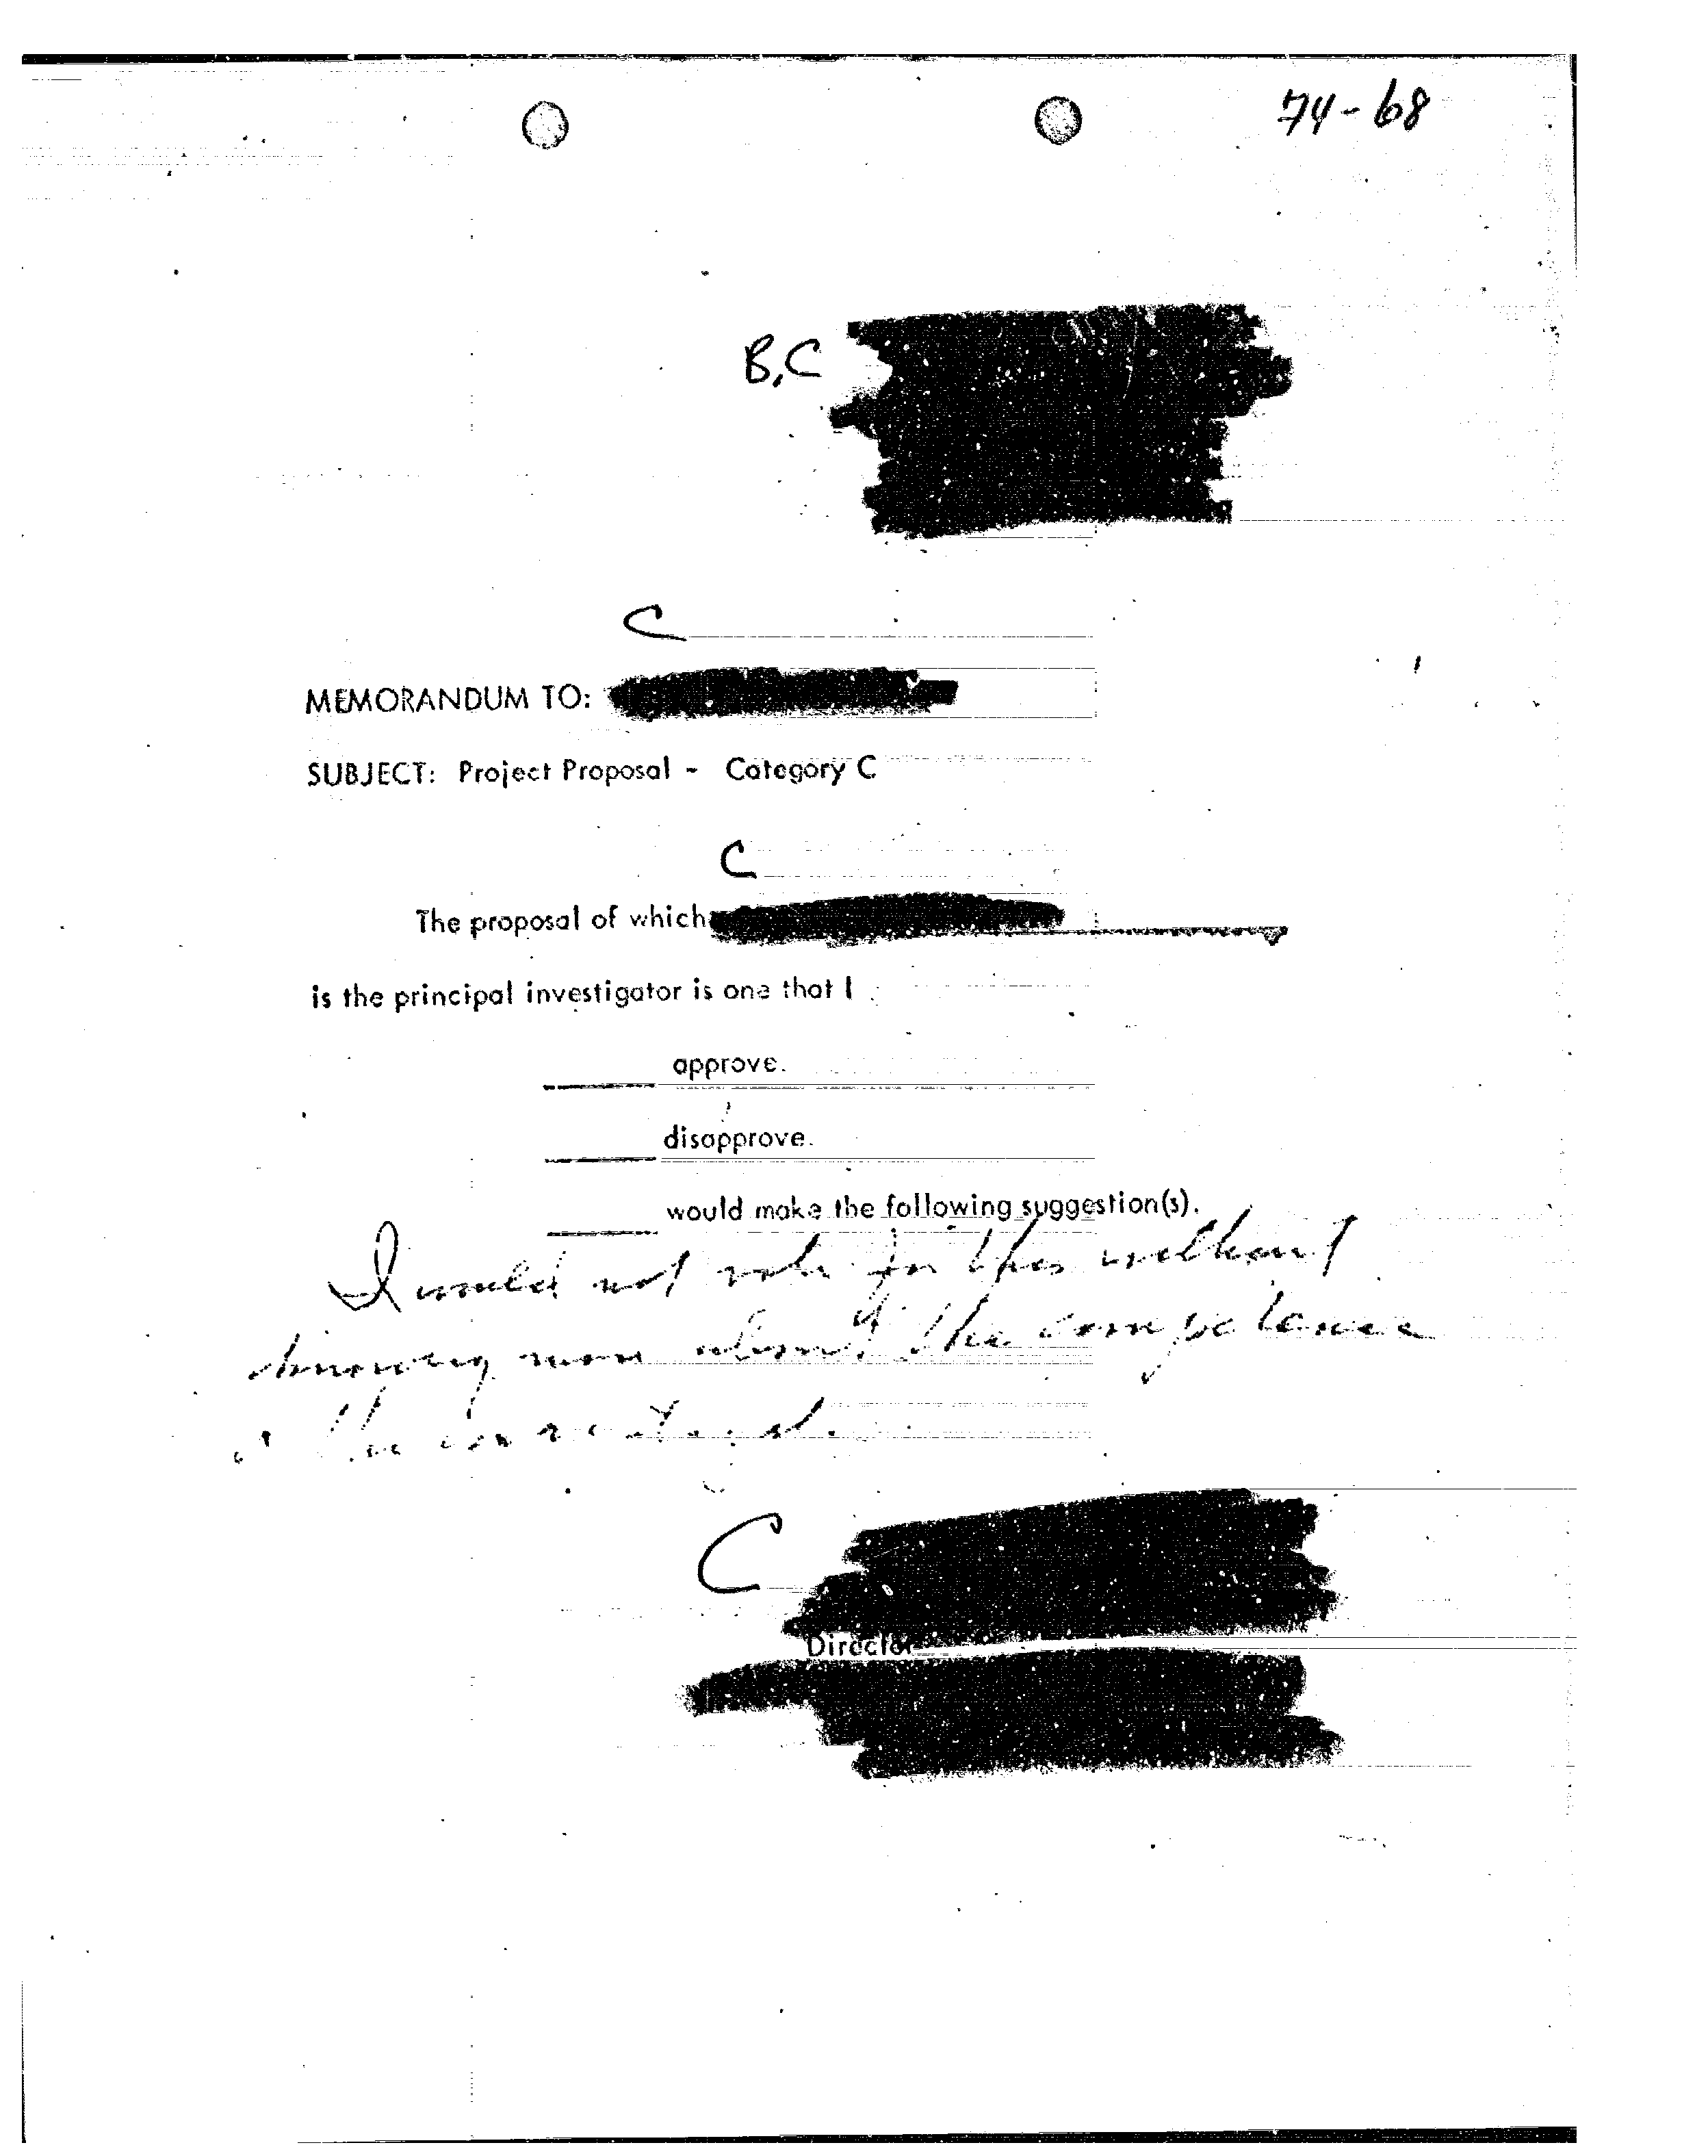 74-68
B,C
C
MEMORANDUM TO:
SUBJECT: Project Proposal - Category C
C
The proposal of which
is the principal investigator is one that I
approve.
disapprove.
would make the following suggestion(s).
I would not vote for this without
knowing more about the competence
of the
C
Director